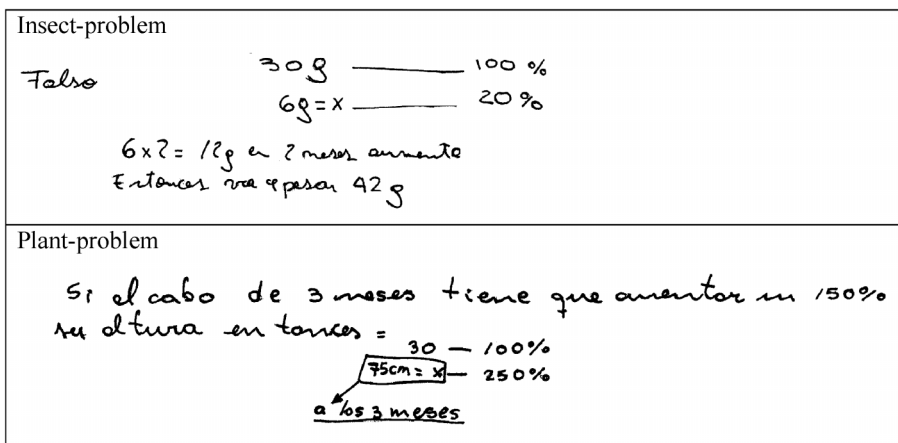 Insect-problem
Falso
30g — 100 %
6g = x — 20 %
6 x 2 = 12g en 2 meses aumenta
Entonces va a pesar 42 g
Plant-problem
Si al cabo de 3 meses tiene que aumentar un 150%
su altura entonces =
30 — 100%
75cm = x — 250%
a los 3 meses